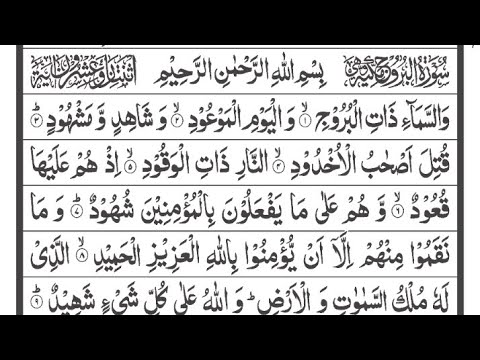 سُوْرَةُ الْبُرُوْجِ مَكِّيَّةٌ بِسْمِ اللّٰهِ الرَّحْمٰنِ الرَّحِيْمِ اثْنَتَانِ وَعِشْرُوْنَ اٰيَةً
وَالسَّمَآءِ ذَاتِ الْبُرُوْجِ ۙ﴿۱﴾ وَ الْيَوْمِ الْمَوْعُوْدِ ۙ﴿۲﴾ وَ شَاهِدٍ وَّ مَشْهُوْدٍ ؕ﴿۳﴾
قُتِلَ اَصْحٰبُ الْاُخْدُوْدِ ۙ﴿۴﴾ النَّارِ ذَاتِ الْوَقُوْدِ ۙ﴿۵﴾ اِذْ هُمْ عَلَيْهَا
قُعُوْدٌ ۙ﴿۶﴾ وَّ هُمْ عَلٰى مَا يَفْعَلُوْنَ بِالْمُؤْمِنِيْنَ شُهُوْدٌ ؕ﴿۷﴾ وَ مَا
نَقَمُوْا مِنْهُمْ اِلَّاۤ اَنْ يُّؤْمِنُوْا بِاللّٰهِ الْعَزِيْزِ الْحَمِيْدِ ۙ﴿۸﴾ الَّذِيْ
لَهٗ مُلْكُ السَّمٰوٰتِ وَ الْاَرْضِ ؕ وَ اللّٰهُ عَلٰى كُلِّ شَيْءٍ شَهِيْدٌ ؕ﴿۹﴾